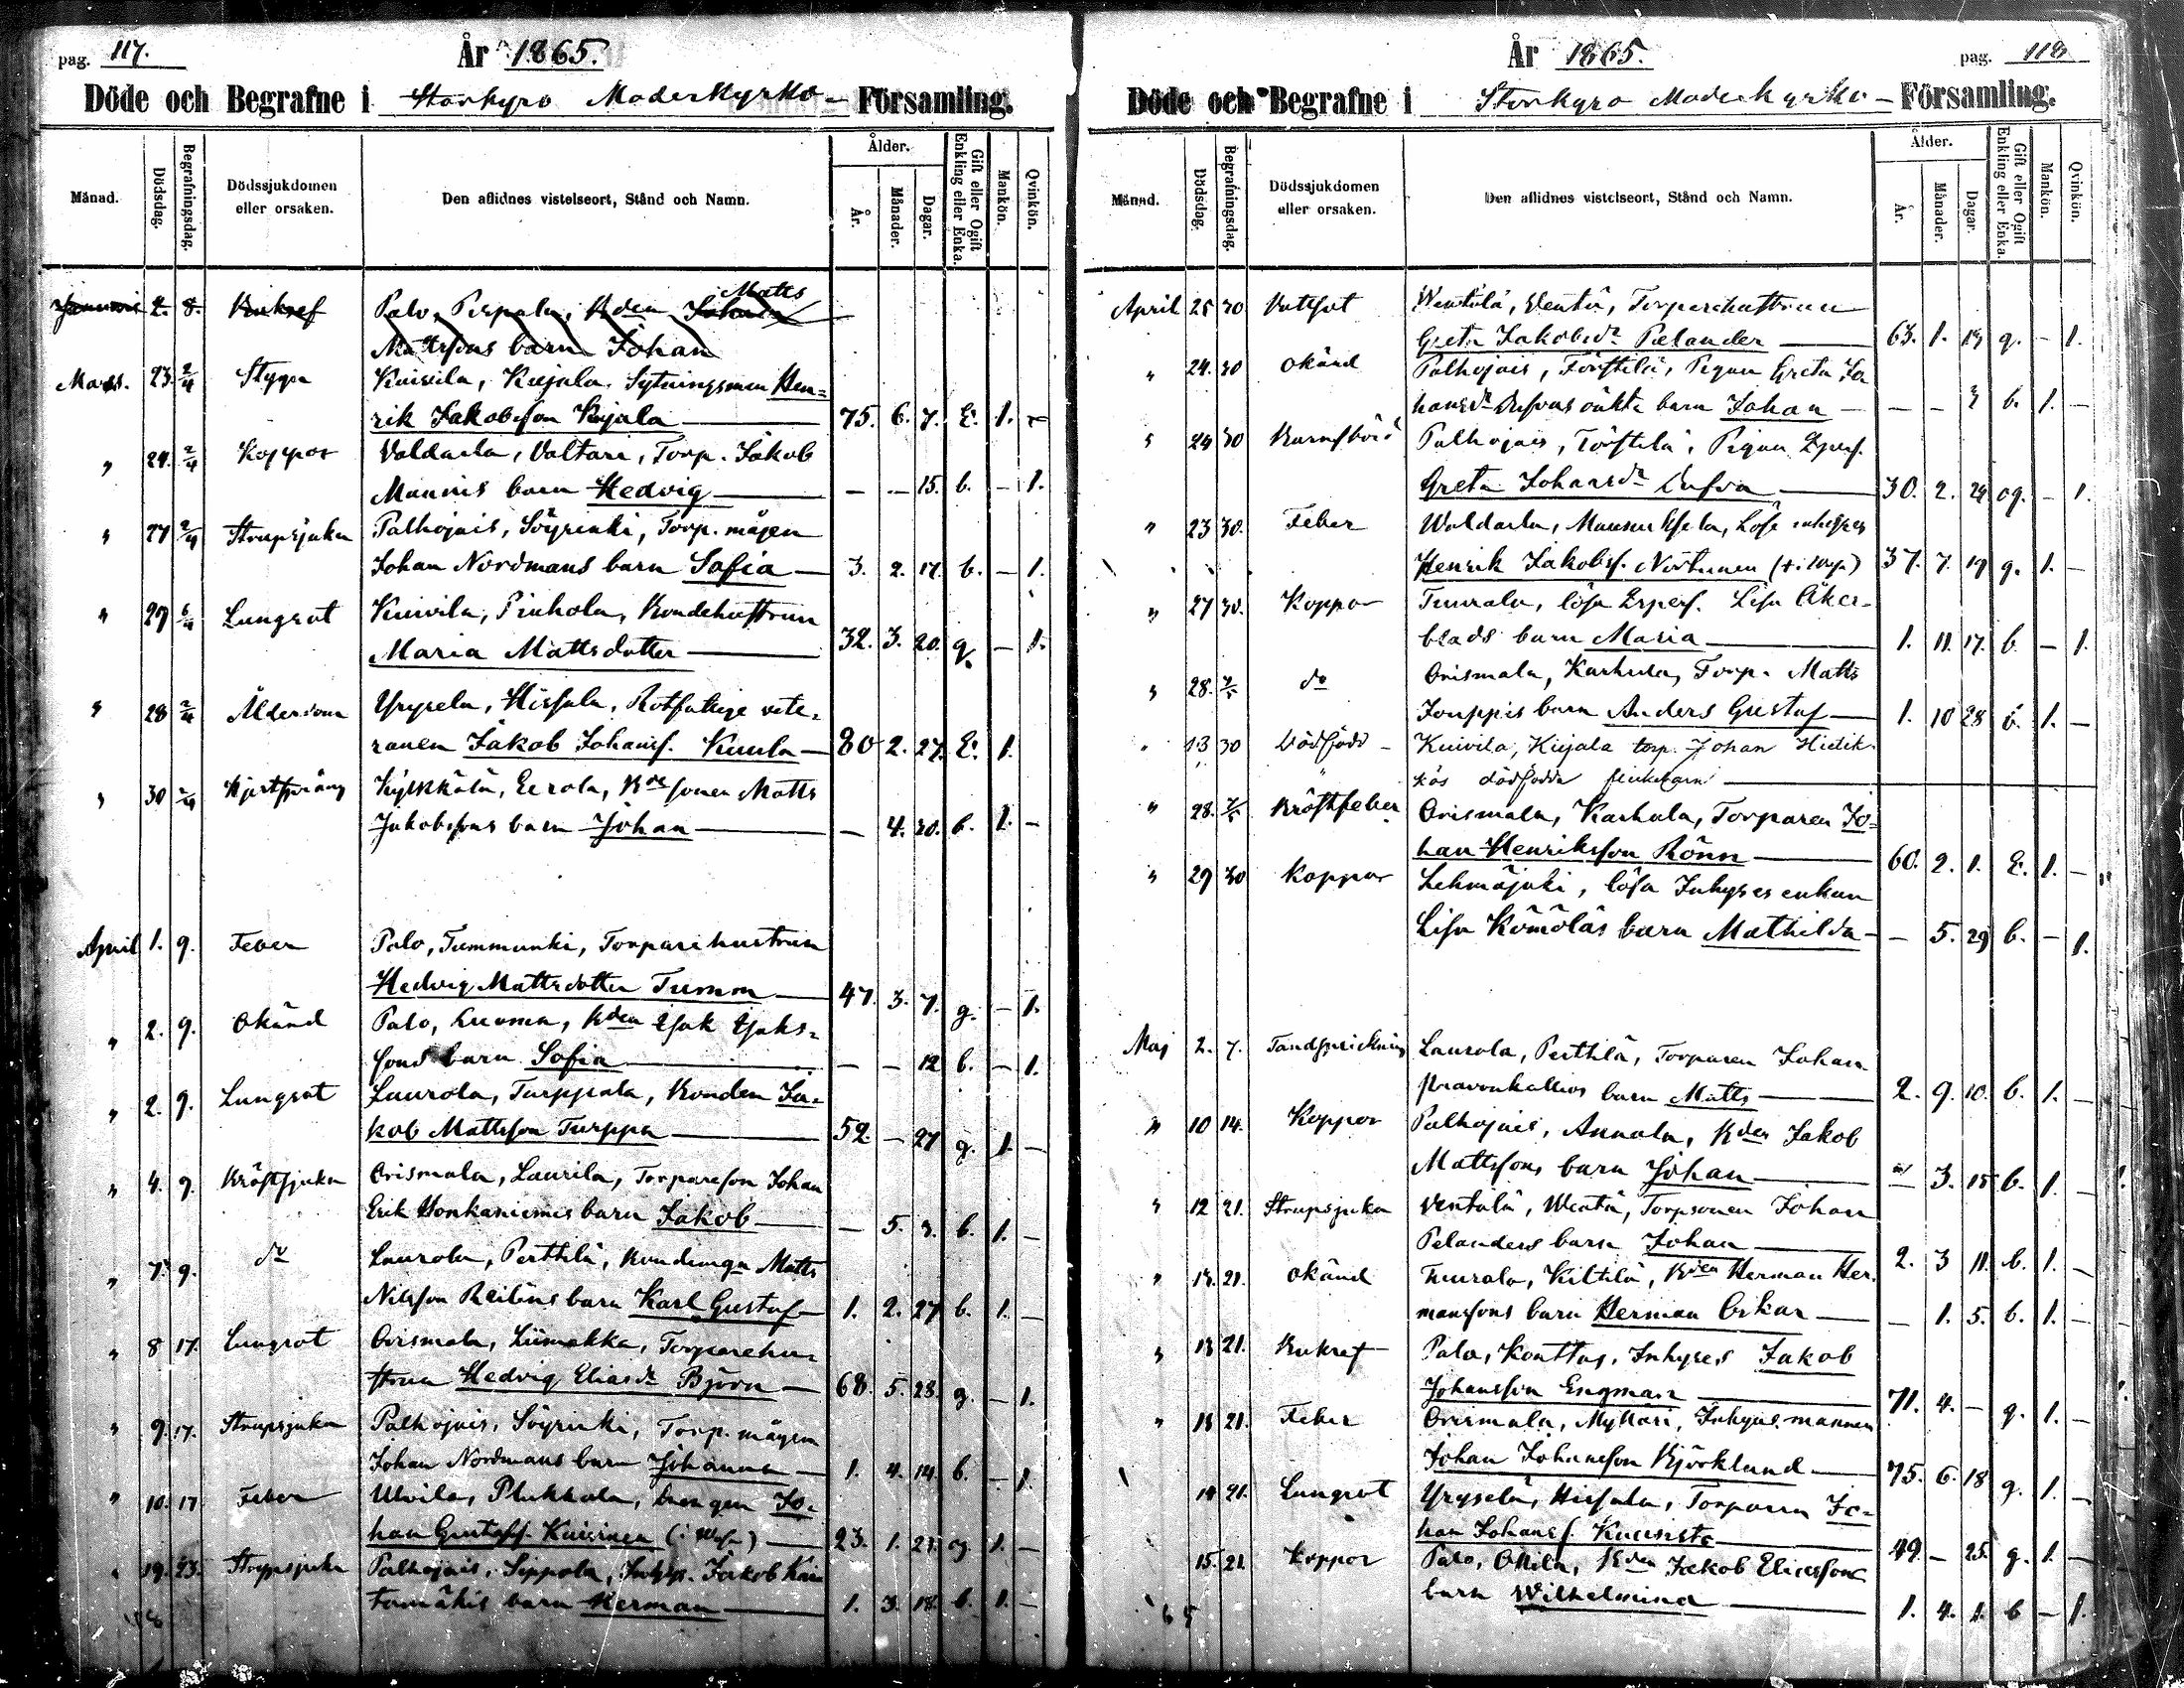 pag. 117.
År 1865.
Döde och Begrafne i Storkyro Moderkyrko- Församling.
Månad.
Dödsdag.
Begrafningsdag.
Dödssjukdomen
eller orsaken.
Den aflidnes vistelseort, Stånd och Namn.
Ålder.
År.
Månader.
Dagar.
Gift eller Ogift
Enkling eller Enka.
Mankön.
Qvinkön.
Januari 2. 8. Bukref Palo, Perpola, Bden Johan Matts
Mattssons barn Johan
Mars. 23. 2/4 Stygn Kuivila, Kujala. Sytningsman Hen=
rik Jakobsson Kujala 75. 6. 7. E. 1. -
" 24. 2/4 Koppor Valdarla, Valtari, Torp. Jakob
Mannis barn Hedvig - - 15. b. - 1.
" 27 2/4 Strupsjukan Palhojais, Söyrinki, Torp. mågen
Johan Nordmans barn Sofia 3. 2. 17. b. - 1.
" 29 6/4 Lungrot Kuivila, Pinhola, Bondehustrun
Maria Mattsdotter 32. 3. 20. g. - 1.
" 28 2/4 Ålderdom Yryselä, Hissala, Rotfattige vete=
ranen Jakob Johanss. Kuula 80 2. 27. E. 1.
" 30 2/4 Hjertsprång Kylkkälä, Eerola, Bdesonen Matts
Jakobssons barn Johan - 4. 20. b. 1. -
April 1. 9. Feber Palo, Tummunki, Torparehustrun
Hedvig Mattsdotter Tumm 47. 3. 7. g. - 1.
" 2. 9. Okänd Palo, Luoma, Bden Isak Isaks=
sons barn Sofia - - 12 b. - 1.
" 2. 9. Lungrot Laurola, Turppala, Bonden Ja=
kob Mattsson Turppa 52. - 27 g. 1. -
" 4. 9. Kräftsjukan Orismala, Laurila, Torpareson Johan
Erik Honkaniemis barn Jakob - 5. 3. b. 1. -
" 7. 9. do Laurola, Perttilä, Bondemgn Matts
Nilsson Reiliins barn Karl Gustaf 1. 2. 27 b. 1. -
" 8 17. Lungrot Orismala, Liimakka, Torparehu=
strun Hedvig Eliasdr Björn 68. 5. 23. g. - 1.
" 9. 17. Strupsjukan Palhojais, Söyrinki, Torp. mågen
Johan Nordmans barn Johanna 1. 4. 14. b. - 1.
" 10. 17 Feber Ulvila, Plukkala, Drengen Jo=
han Gustafss. Kuisinen (i Wasa) 23. 1. 21. og 1. -
" 19. 23. Strupsjuka Palhojais, Sippola, Inhys. Jakob Kai
tamäkis barn Herman 1. 3. 18. b. 1. -
År 1865.
pag. 118
Döde och Begrafne i Storkyro Moderkyrko- Församling.
Månad.
Dödsdag.
Begrafningsdag.
Dödssjukdomen
eller orsaken.
Den aflidnes vistelseort, Stånd och Namn.
Ålder.
År.
Månader.
Dagar.
Gift eller Ogift
Enkling eller Enka.
Mankön.
Qvinkön.
April 25 30 Vattsot Wentälä, Wentä, Torparehustrun
Greta Jakobsdr Pelander 63. 1. 19 g. - 1.
" 24. 30 Okänd Palhojais, Törstilä, Pigan Greta Jo
hansdr Dufvas oäkta barn Johan - - 3 b. 1. -
" 24 30 Barnsbörd Palhojais, Törstilä, Pigan
Greta Johansdr Dufva 30. 2. 24 og. - 1.
" 23 30. Feber Waldarla, löse inhyses
Henrik Jakobss. Nortunen 37. 7. 19 g. 1. -
" 27 30. Koppor Tuurala, lösa Lisa Åker=
blads barn Maria 1. 11. 17. b. - 1.
" 28. 7/5 do Orismala, Karhula, Torp. Matts
Jouppis barn Anders Gustaf 1. 10 28 b. 1. -
" 13 30 Dödfödd Kuivila, Kujala torp. Johan Hietik
kös dödfödda flickebarn
" 28. 7/5 Kräftfeber Orismala, Karhula, Torparen Jo=
han Henriksson Rönn 60. 2. 1. E. 1. -
" 29 30 Koppor Lehmäjoki, lösa Inhyses enkan
Lisa Kömöläs barn Mathilda - 5. 29 b. - 1.
Maj 2. 7. Tandsprickning Laurola, Perttilä, Torparen Johan
barn Matts 2. 9. 10. b. 1. -
" 10 14. Koppor Palhojais, Annala, Bden Jakob
Mattssons barn Johan - 3. 15 b. 1. -
" 12 21. Strupsjukan Wentälä, Wentä, Torpsonen Johan
Pelanders barn Johan 2. 3 11. b. 1. -
" 13. 21. Okänd Tuurala, Kiltilä, Bden Herman Her
manssons barn Herman Oskar - 1. 5. b. 1. -
" 13 21. Bukref Palo, Kouttus, Inhyses Jakob
Johansson Engman 71. 4. - g. 1. -
" 13 21. Feber Orismala, Mylläri, Inhyses mannen
Johan Johansson Björklund 75. 6. 18 g. 1. -
14 21. Lungrot Yryselä, Hissala, Torparen Jo=
han Johanss. Kuunsto 49. - 25. g. 1. -
15. 21. Koppor Palo, Ollila, Bden Jakob Eliassons
barn Wilhelmina 1. 4. 1. b - 1.